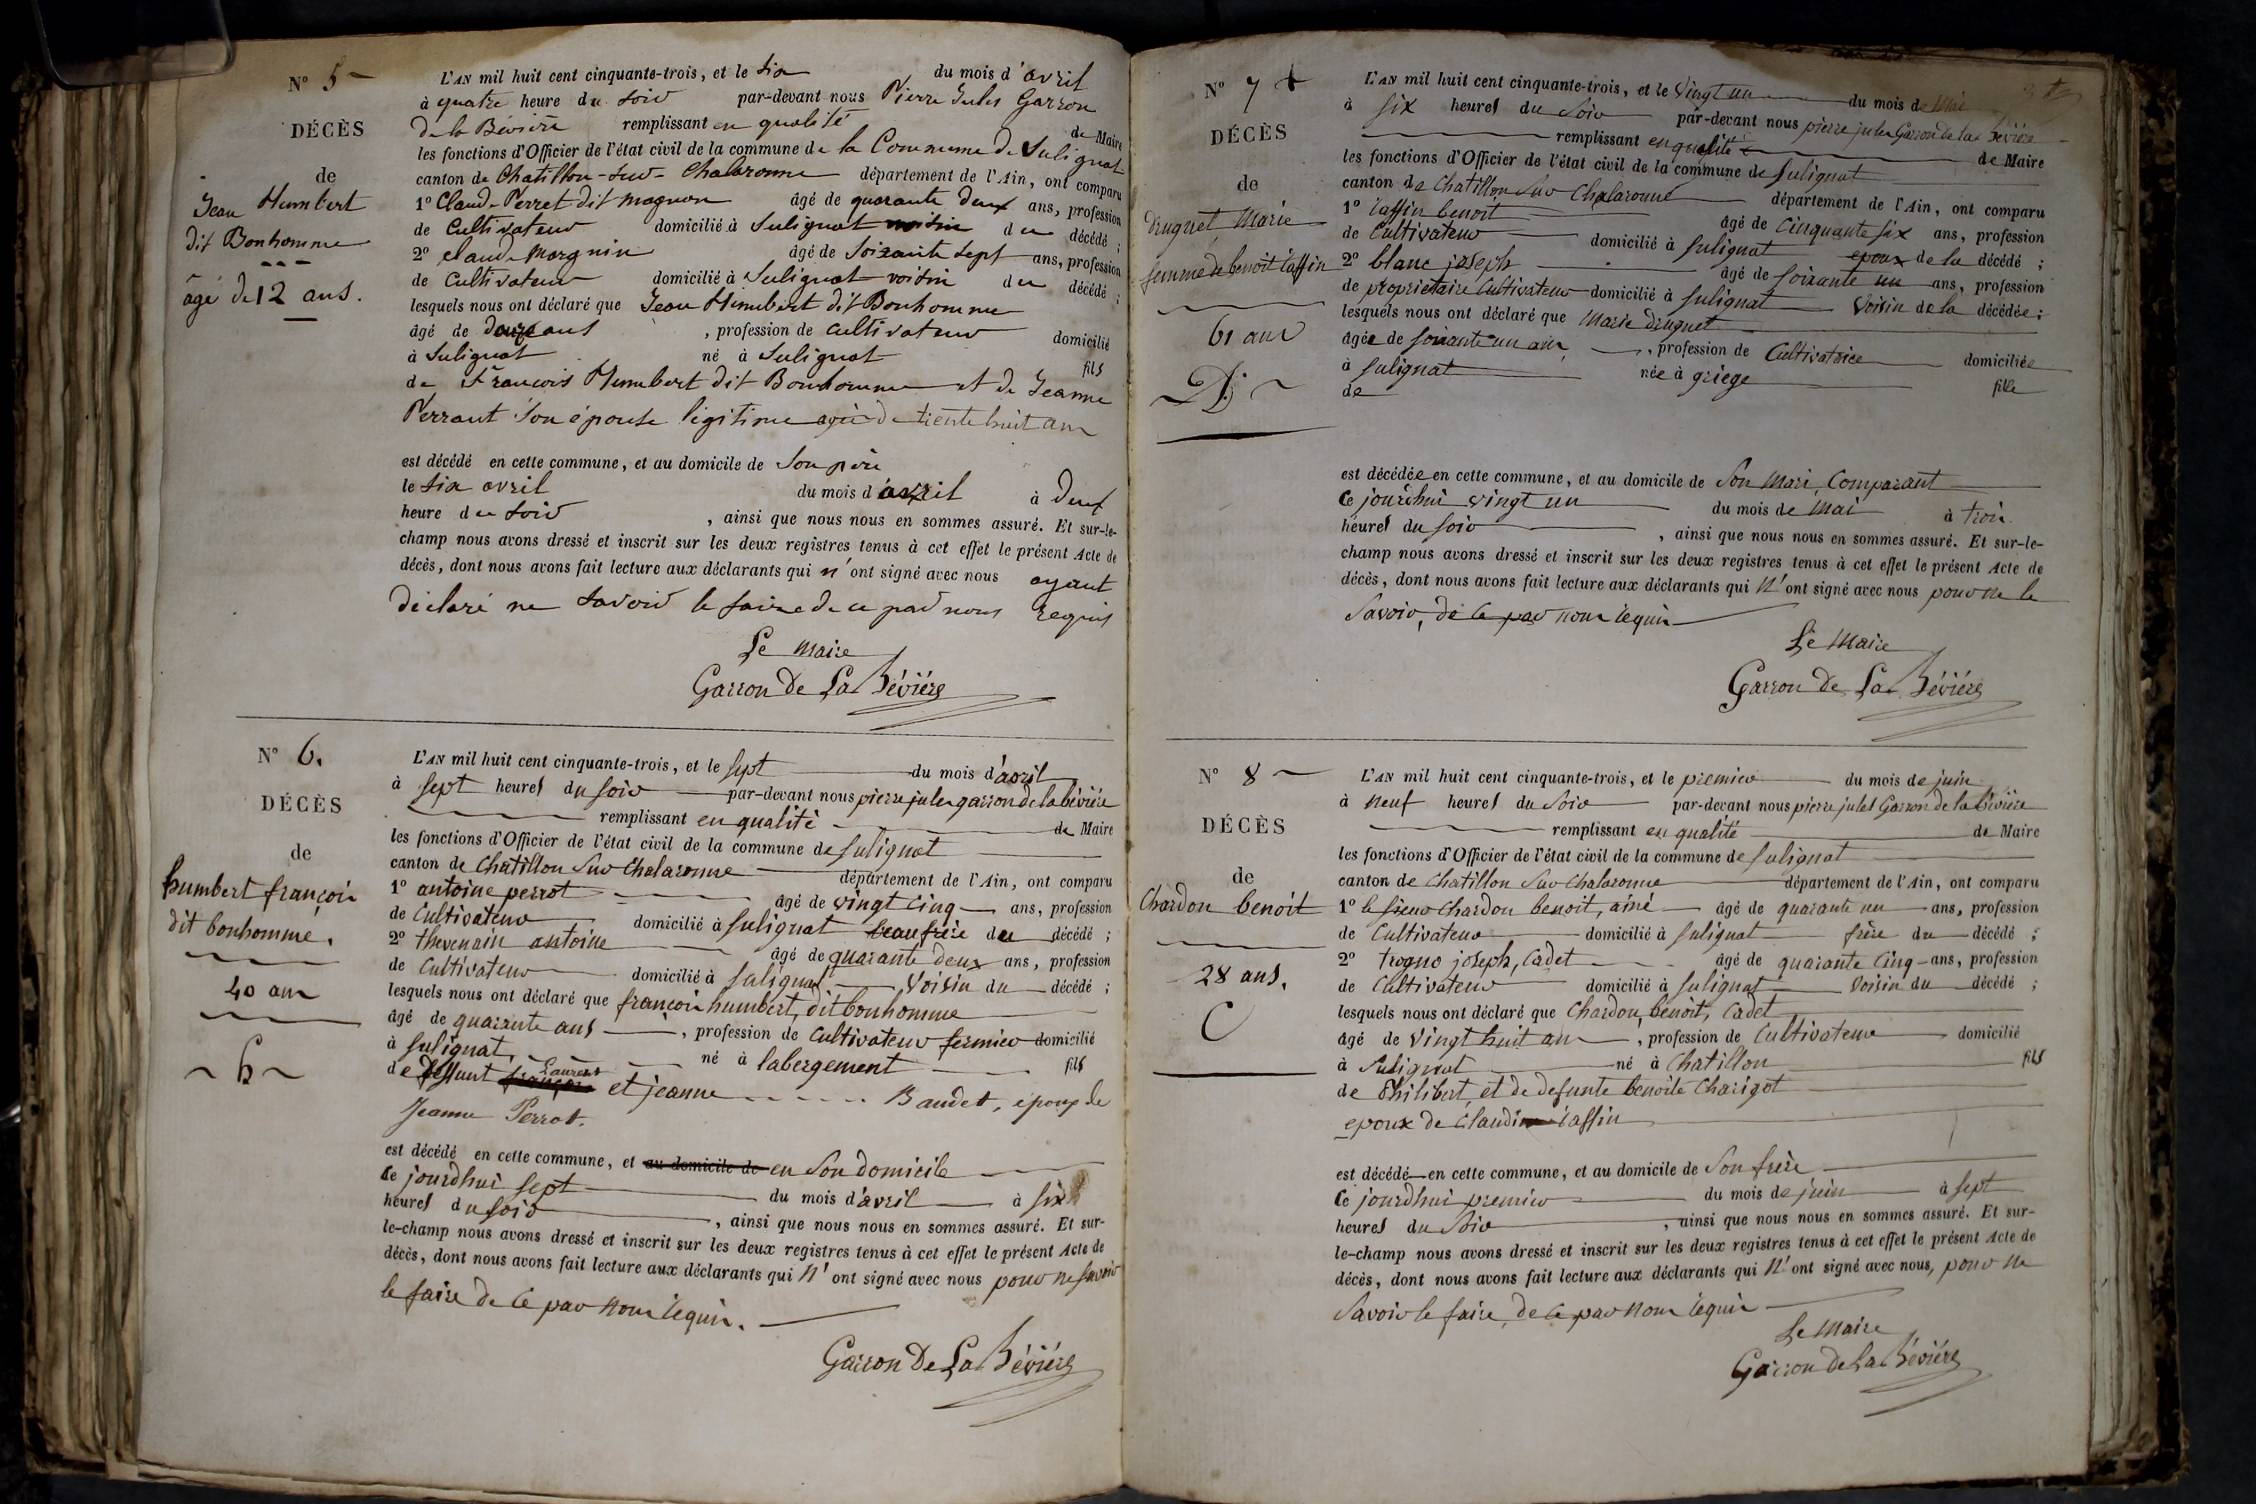 N° 5
DÉCÈS
de
Jean Humbert
dit Bonhomme
âgé de 12 ans.
L'AN mil huit cent cinquante-trois, et le six du mois d'avril
à quatre heure du soir par-devant nous Pierre Jules Garron
de la Bévière remplissant en qualité de Maire
les fonctions d'Officier de l'état civil de la commune de la Commune de Sulignat
canton de Chatillon-sur-Chalaronne département de l'Ain, ont comparu
1° Claude Perret dit magnon âgé de quarante deux ans, profession
de Cultivateur domicilié à Sulignat voisin du décédé ;
2° Claude Margnin âgé de soixante sept ans, profession
de Cultivateur domicilié à Sulignat voisin du décédé ;
lesquels nous ont déclaré que Jean Humbert dit Bonhomme
âgé de douze ans, profession de cultivateur domicilié
à Sulignat né à Sulignat fils
de François Humbert dit Bonhomme et de Jeanne
Perraut son épouse légitime agée de trente huit ans
est décédé en cette commune, et au domicile de son père
le six avril du mois d'avril à deux
heure du soir, ainsi que nous nous en sommes assuré. Et sur-le-
champ nous avons dressé et inscrit sur les deux registres tenus à cet effet le présent Acte de
décès, dont nous avons fait lecture aux déclarants qui n'ont signé avec nous ayant
déclaré ne savoir le faire de ce par nous requis
Le Maire
Garron De La Bévière
N° 6.
DÉCÈS
de
humbert françois
dit bonhomme.
40 ans
h
L'AN mil huit cent cinquante-trois, et le sept du mois d'avril
à sept heures du soir par-devant nous pierre jules garron de la bévière
remplissant en qualité de Maire
les fonctions d'Officier de l'état civil de la commune de Sulignat
canton de Chatillon sur Chalaronne département de l'Ain, ont comparu
1° antoine perrot âgé de vingt cinq ans, profession
de Cultivateur domicilié à Sulignat beaufrère du décédé ;
2° thevenain antoine âgé de quarante deux ans, profession
de Cultivateur domicilié à Sulignat Voisin du décédé ;
lesquels nous ont déclaré que françois humbert, dit bonhomme
âgé de quarante ans, profession de cultivateur fermier domicilié
à Sulignat, né à labergement fils
de deffunt françois Laurent et jeanne Baudet, époux de
Jeanne Perrot.
est décédé en cette commune, et au domicile de en son domicile
Ce jourdhui sept du mois d'avril à six
heures du soir, ainsi que nous nous en sommes assuré. Et sur-
le-champ nous avons dressé et inscrit sur les deux registres tenus à cet effet le présent Acte de
décès, dont nous avons fait lecture aux déclarants qui n'ont signé avec nous pour ne savoir
le faire de ce par nous requis.
Garron De La Bévière
N° 7
DÉCÈS
de
druguet Marie
femme de benoit taffin
61 ans
D.
L'AN mil huit cent cinquante-trois, et le vingt un du mois de Mai
à six heures du soir par-devant nous pierre jules Garron de la Bévière
remplissant en qualité de Maire
les fonctions d'Officier de l'état civil de la commune de Sulignat
canton de Chatillon sur Chalaronne département de l'Ain, ont comparu
1° taffin benoit âgé de cinquante six ans, profession
de Cultivateur domicilié à Sulignat epoux de la décédé ;
2° blanc joseph âgé de soixante un ans, profession
de propriétaire Cultivateur domicilié à Sulignat Voisin de la décédée ;
lesquels nous ont déclaré que Marie druguet
âgée de soixante un ans, profession de Cultivatrice domiciliée
à Sulignat née à griege fille
de
est décédée en cette commune, et au domicile de Son Mari, Comparant
Ce jourdhui vingt un du mois de Mai à trois
heures du soir, ainsi que nous nous en sommes assuré. Et sur-le-
champ nous avons dressé et inscrit sur les deux registres tenus à cet effet le présent Acte de
décès, dont nous avons fait lecture aux déclarants qui n'ont signé avec nous pour ne le
Savoir, de ce par nous requis
Le Maire
Garron De La Bévière
N° 8
DÉCÈS
de
Chardon benoit
28 ans.
C
L'AN mil huit cent cinquante-trois, et le premier du mois de juin
à neuf heures du soir par-devant nous pierre jules Garron de la bévière
remplissant en qualité de Maire
les fonctions d'Officier de l'état civil de la commune de Sulignat
canton de Chatillon sur Chalaronne département de l'Ain, ont comparu
1° le sieur Chardon benoit, ainé âgé de quarante un ans, profession
de Cultivateur domicilié à Sulignat frère du décédé ;
2° trogno joseph, Cadet âgé de quarante cinq ans, profession
de Cultivateur domicilié à Sulignat Voisin du décédé ;
lesquels nous ont déclaré que Chardon, benoit, Cadet
âgé de vingt huit ans, profession de Cultivateur domicilié
à Sulignat né à Chatillon fils
de Philibert, et de defunte benoite Charigot
epoux de Claudine taffin
est décédé en cette commune, et au domicile de Son frère
Ce jourdhui premier du mois de juin à sept
heures du soir, ainsi que nous nous en sommes assuré. Et sur-
le-champ nous avons dressé et inscrit sur les deux registres tenus à cet effet le présent Acte de
décès, dont nous avons fait lecture aux déclarants qui n'ont signé avec nous, pour ne
Savoir le faire, de ce par nous requis
Le Maire
Garron De La Bévière